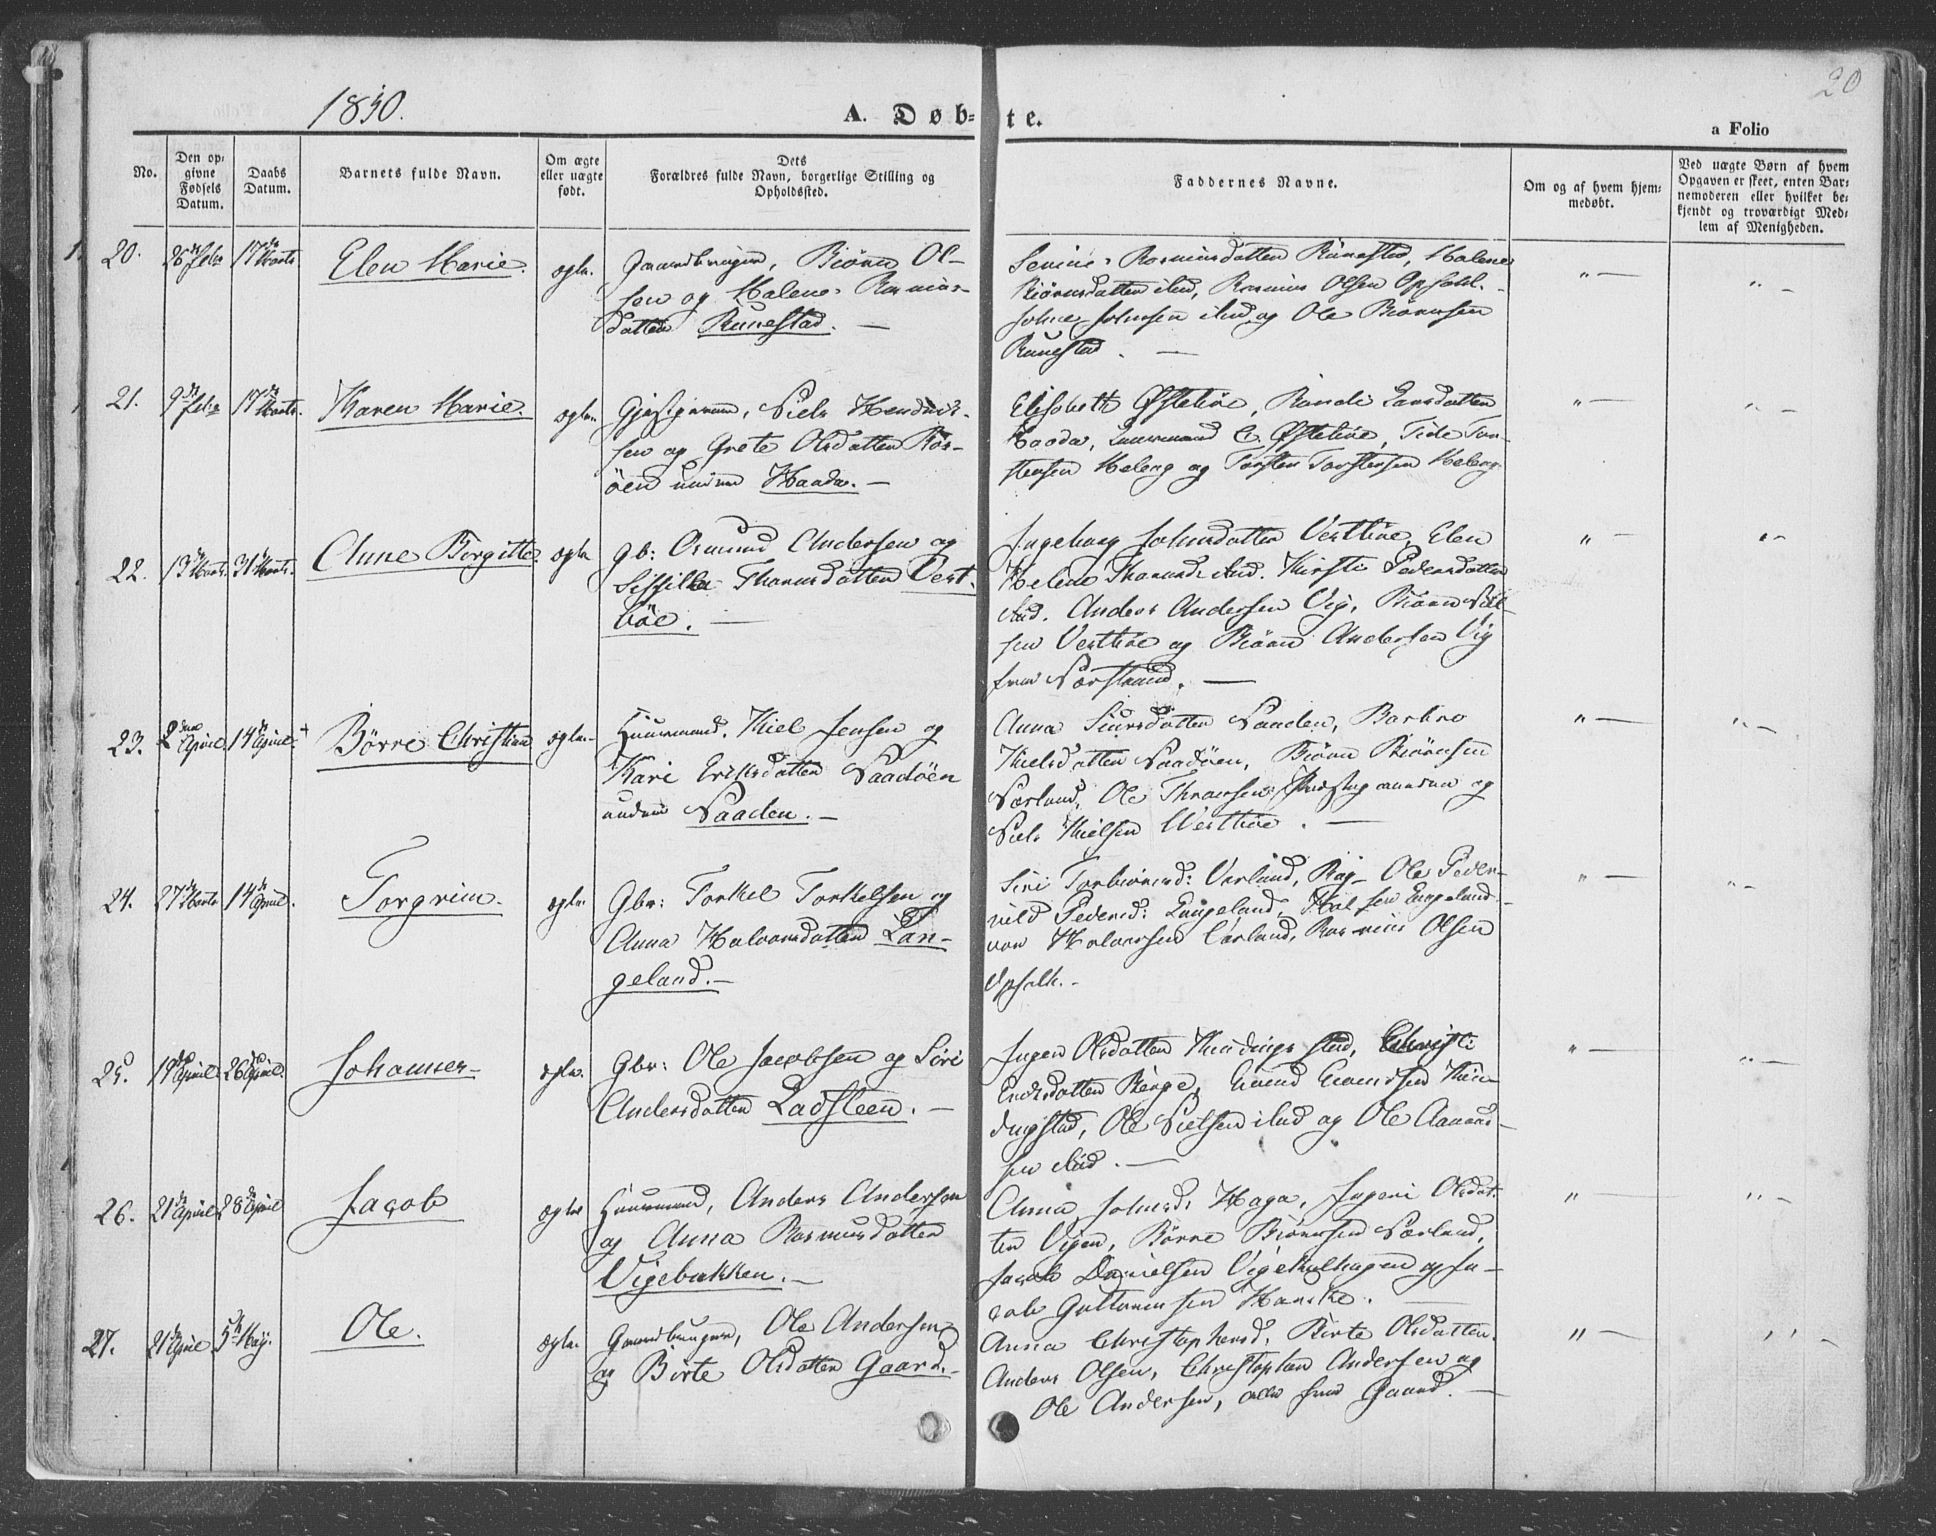 20
1850.
A. Døb- te.
a Folio
No.
Den op-
givne
Fødsels
Datum.
Daabs
Datum.
Barnets fulde Navn.
Om ægte
eller uægte
født.
Dets
Forældres fulde Navn, borgerlige Stilling og
Opholdssted.
Faddernes Navne.
Om og af hvem hjem-
medøbt.
Ved uægte Børn af hvem
Opgaven er skeet, enten Bar-
nemoderen eller hvilket be-
kjendt og troværdigt Med-
lem af Menigheden.
20. 26de Febr 17de Marts Elen Marie. ægte.
Gaardbruger, Biørn Ol-
sen og Malene Rasmus-
datten Runestad. —
Rasmusdatten Runestad, Malene
Biørnsdatten ibid, Rasmus Olsen Opsahl.
Johnsen ibid og Ole Biørnsen
Runestad. —
21. 9de Febr 17de Marts. Karen Marie. ægte.
Niels Hendrik-
sen og Grete Olsdatten
under Haada. —
Elisabeth Østebøe, Larsdatten
Haada, Østebøe,
Heleng og Torsten Torstensen Heleng
22. 13de Marts. 31te Marts. Anne Birgitte. ægte
gb: Osmund Andersen og
Sissilla Thorsdatten Vest-
bøe. —
Ingeborg Johnsdatten Vestbøe, Elen
Helene ibid. Kirsti Pedersdatten
ibid. Anders Andersen Vig, Biørn Niel-
sen Vestbøe og Biørn Andersen Vig
23. 2den April 14de April Børre Christian ægte.
Huusmand, Kiel Jensen og
Kari Eriksdatten Naadøen
under Naaden. —
Anna Siursdatten Naaden, Barbro
Kielsdatten Naadøen, Biørn Biørnsen
Nærland, Ole
Niels Kielsen Westbøe. —
24. 27de Marts 14de April. Torgrim. ægte.
Gbr: Torkel Torkelsen og
Anna Halvorsdatten Lan-
geland. —
Siri Torbiørnsd: Varland, Rag- Ole Peder-
nild Pedersd: Langeland, Hal sen Langeland.
vor Halvorsen Varland, Rasmus Olsen
Opsalh. -
25. 19de April 26de April. Johannes ægte.
Gbr: Ole Jacobsen og Siri
Andersdatten Ladsteen. —
Inger Olsdatten Kindingstad, Christi
Berge,
dingstad, Ole Nielsen ibid og Ole Aamund-
sen ibid. —
26. 21de April 28de April Jacob ægte
Huusmand, Anders Andersen
og Anna Rasmusdatten
Vigebakken. —
Anna Johnsd: Haga, Ingeri Olsdat-
ten Vigen, Børre Biørnsen Nærland,
Jacob Danielsen og Ja-
cob Guttormsen
27. 21de April 5te May. Ole. ægte.
Gaardbruger, Ole Andersen
og Birte Olsdatten Gaard. —
Anna Christophersd. Birte Olsdatten.
Anders Olsen, Christopher Andersen og
Ole Andersen, alle fra Gaard. —